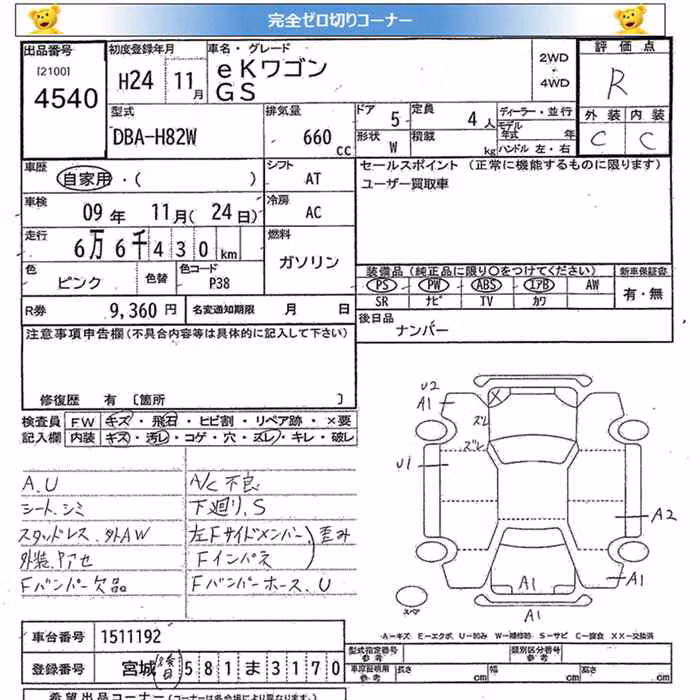 完全ゼロ切りコーナー
出品番号
[2100]
4540
初度登録年月
H24 11月
車名・グレード
eKワゴン
GS
2WD
・
4WD
評価点
R
外装 内装
C C
型式
DBA-H82W
排気量
660 CC
ドア 5
定員 4人
形状 W
積載 kg
ディーラー・並行
モデル年式 年
ハンドル 左・右
車歴
自家用・( )
シフト
AT
車検
09年 11月(24日)
冷房
AC
走行
6万6千430km
燃料
ガソリン
色
ピンク
色替
色コード
P38
R券 9,360円
名変通知期限 月 日
セールスポイント (正常に機能するものに限ります)
ユーザー買取車
装備品 (純正品に限り○をつけてください)
PS PW ABS エアB AW
SR ナビ TV カワ
新車保証書
有・無
後日品
ナンバー
注意事項申告欄(不具合内容等は具体的に記入して下さい)
修復歴 有〔箇所 〕
検査員記入欄
FW キズ・飛石・ヒビ割・リペア跡・×要
内装 キズ・汚レ・コゲ・穴・スレ・キレ・破レ
A.U
シート.シミ
スタッドレス.外AW
外装.ヤアセ
Fバンパー欠品
A/C不良
下廻り.S
左Fサイドメンバー
Fインパネ
歪み
Fバンパーホース.U
U2
A1
ズレ
ズレ
U1
A2
A1
A1
A1
スペア
A-キズ E-エクボ U-凹み W-補修跡 S-サビ C-腐食 XX-交換済
車台番号 1511192
登録番号 宮城 後日 581 ま 3170
型式指定番号 参考
類別区分番号 参考
車庫証明用 参考 長さ cm 幅 cm 高さ cm
希望出品コーナー